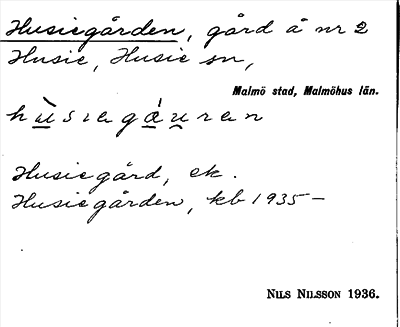 Husiegården, gård å nr 2
Husie, Husie sn,
Malmö stad, Malmöhus län.
Husiegård, ek.
Husiegården, kb 1935–
Nils Nilsson 1936.